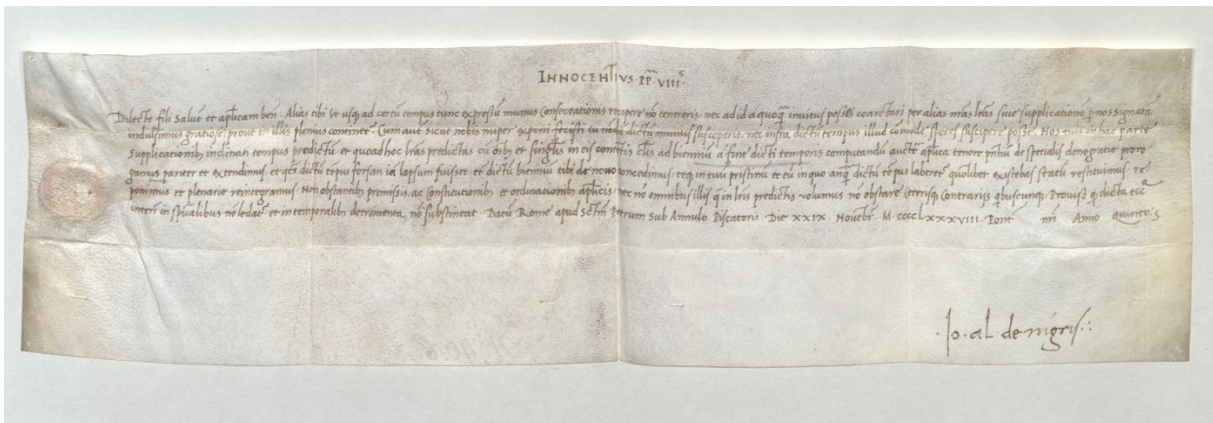 INNOCENTIVS PP VIII
Dilecte fili salut et aplicam ben. Alias tibi ut usq ad certu tempus tunc expressu munus consecrationis recipere no tenereris nec ad id a quoq invitus posses coarctari per alias nras lras sive supplicatione p nos signata
indulsimus gratiose prout in illis plenius continet. Cum aute sicut nobis nuper exponi fecisti tu nodu dictu munus susceperis nec infra dictu tempus illud comode speres suscipere posse. Nos tuis in hac parte
supplicationibz inclinati tempus predictu et quoad hoc lras predictas cu oibz et singlis in eis contetis clis ad bienniu a fine dicti temporis computandu aucte aplica tenore pntiu de specialis dono gratie proro
gamus pariter et extendimus et qts dictu tepus forsan ia lapsum fuisset et dictu bienniu tibi de novo concedimus: teq in tuu pristinu et eu in quo anq dictu tepus laberet quolibet existebas statu restituimus re
ponimus et plenarie reintegramus. Non obstantibz premissis ac constitutionibz et ordinationibz aplicis nec no omnibus illis q in lris predictis volumus no obstare ceterisq contrarijs qbuscunq. Proviso q dicta ecc
interi in spualibus no ledat et in temporalibz detrimenta no substineat. Datu Rome apud Sctm Petrum Sub Annulo Piscatoris Die XXIX Novebr M CCCC LXXXVIII Pont nri Anno Quinto
Jo. al. de nigris